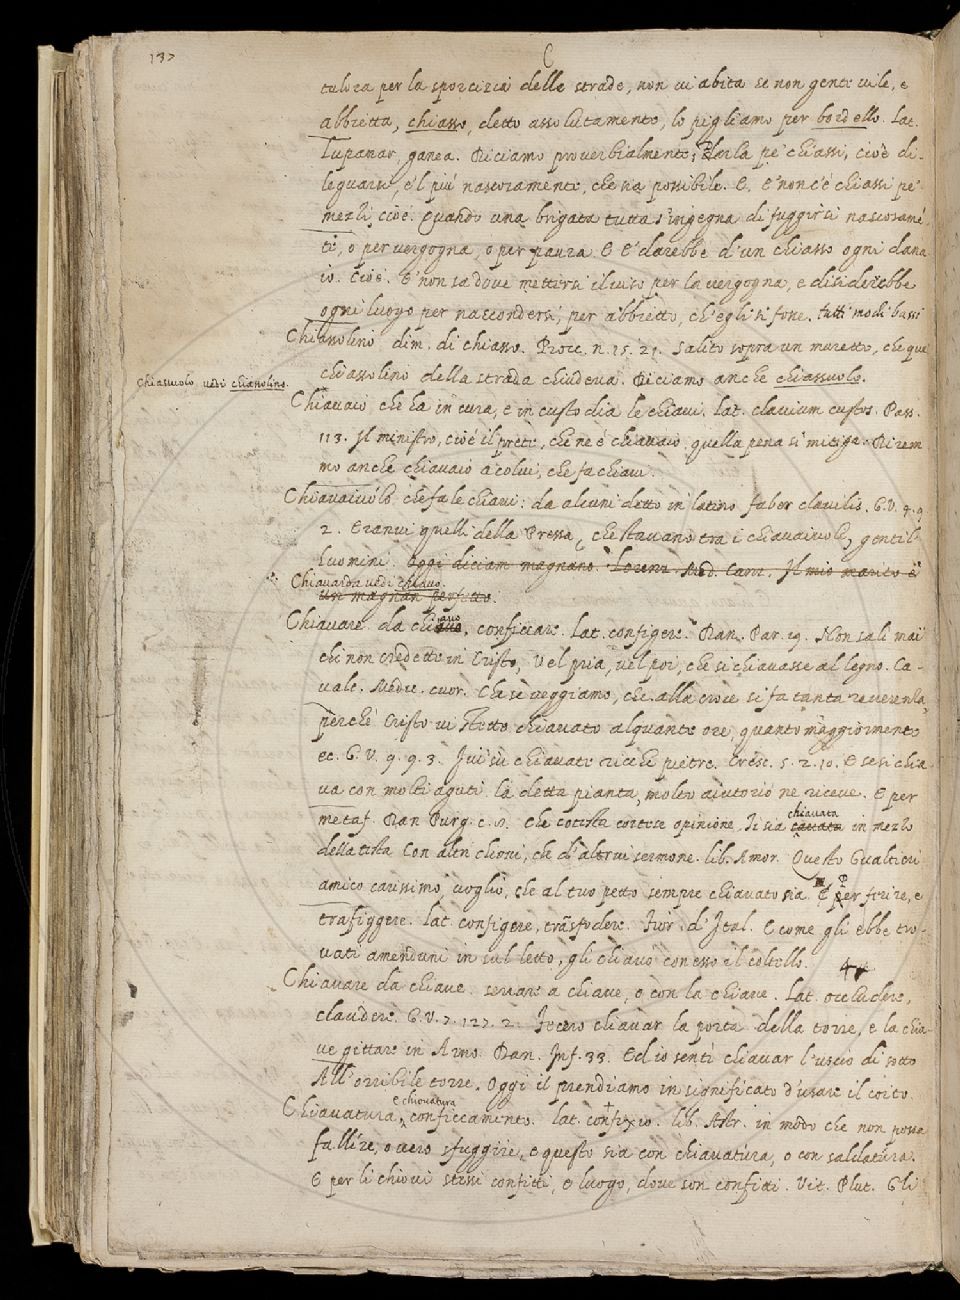 137
C
talora per la sporcizia delle strade, non vi abita se non gente vile, e
abbietta, chiasso, detto assolutamente, lo pigliamo per bordello. Lat.
Lupanar, ganea. Diciamo proverbialmente; Darla pe' chiassi, cioè di-
leguarsi, e 'l più nascosamente, che sia possibile. E. E' non c'è chiassi pe'
mezzi, cioè. Quando una brigata tutta s'ingegna di fuggirsi nascosamē
te, o per vergogna, o per paura E E' darebbe d'un chiasso ogni dana
io. Cioè. E' non sa dove mettersi il viso per la vergogna, e desiderebbe
ogni luogo per nascondersi, per abbietto, ch'egli si fosse. tutti modi bassi
Chiassolino dim. di chiasso. Bocc. n. 15. 21. Salito sopra un muretto, che quel
chiassolino della strada chiudeva. Diciamo anche chiassuolo.
Chiassuolo vedi chiassolino.
Chiavaio che ha in cura, e in custodia le chiavi. Lat. clavium custos. Pass.
113. Il ministro, cioè il prete, che ne è chiavaio, quella pena si mitiga. Direm
mo anche chiavaio a colui, che fa chiavi.
Chiavaiuolo che fa le chiavi: da alcuni detto in latino faber clavilis. G.V. 4. 9
2. Eranvi quelli della Pressa, che stavano tra i chiavaiuoli, gentil'
huomini. Oggi diciam magnano. Lorenz. Med. Canz. Il mio marito è
Chiavarda vedi chiavo.
un magnan perfetto.
Chiavare da chiavo, conficcare. Lat. configere. Dan. Par. 19. Non salì mai
chi non credette in Cristo, Vel pria, vel poi, che si chiavasse al legno. Ca-
valc. Medic. cuor. Che se veggiamo, che alla croce si fa tanta reverenza,
perchè Cristo vi stette chiavato alquante ore, quanto maggiormente
ec. G.V. 9. 9. 3. Ivi sù chiavate ricche pietre. Cresc. 5. 2. 10. E se si chia-
va con molti aguti la detta pianta, molto aiutorio ne riceve. E per
metaf. Dan Purg. c. 8. Che cotesta cortese opinione, Ti sia chiavata in mezzo
della testa Con altri chiovi, che d'altrui sermone. lib. Amor. Questo Gualtieri
amico carissimo, voglio, che al tuo petto sempre chiavato sia. E Per ferire, e
trafiggere. Lat. configere, trāsfodere. Fior. d'Ital. E come gli ebbe tro-
vati amenduni in sul letto, gli chiavò con esso il coltello.
Chiavare da chiave. serrare a chiave, o con la chiave. Lat. occludere,
claudere. G.V. 7. 127. 2. Fecero chiavar la porta della torre, e la chia-
ve gittare in Arno. Dan. Inf. 33. Ed io sentì chiavar l'uscio di sotto
All'orribile torre. Oggi il prendiamo in significato d'usare il coito.
Chiavatura, e chiovatura conficcamento. lat. confixio. lib. Astr. in modo che non possa
fallire, o vero sfuggire, e questo sia con chiavatura, o con saldatura.
E per li chiovi stessi confitti, e luogo, dove son confitti. Vit. Plut. Gli